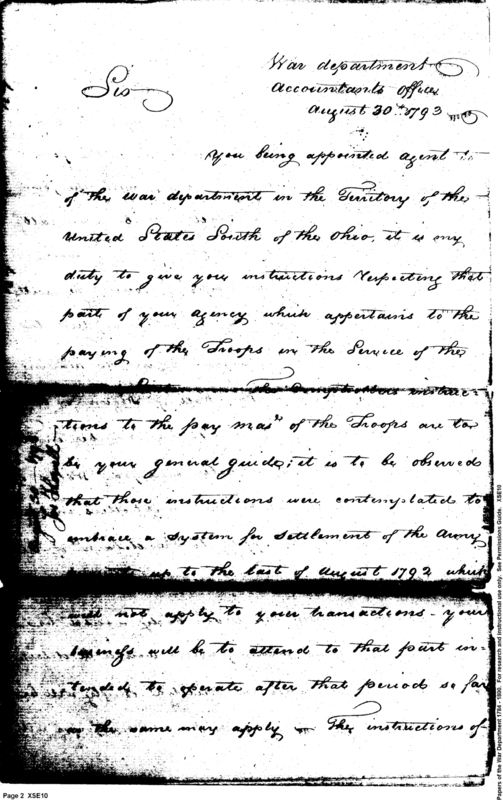 War department
Accountants office
August 30th 1793
Sir
You being appointed agent
of the war department in the Territory of the
United States South of the Ohio, it is my
duty to give your instructions respecting that
part of your agency which appertains to the
paying of the Troops in the Service of the
The Comptrollers instruc-
tions to the pay masr of the Troops are to
be your general guide; it is to be observed
that those instructions were contemplated to
embrace a System for Settlement of the Army
up to the last of August 1792 which
not apply to your transactions - your
business will be to attend to that part in-
tended to operate after that period so far
as the same may apply - The instructions of
Page 2 XSE10
Papers of the War Department 1784 - 1800. For research and instructional use only. See Permissions Guide. XSE10